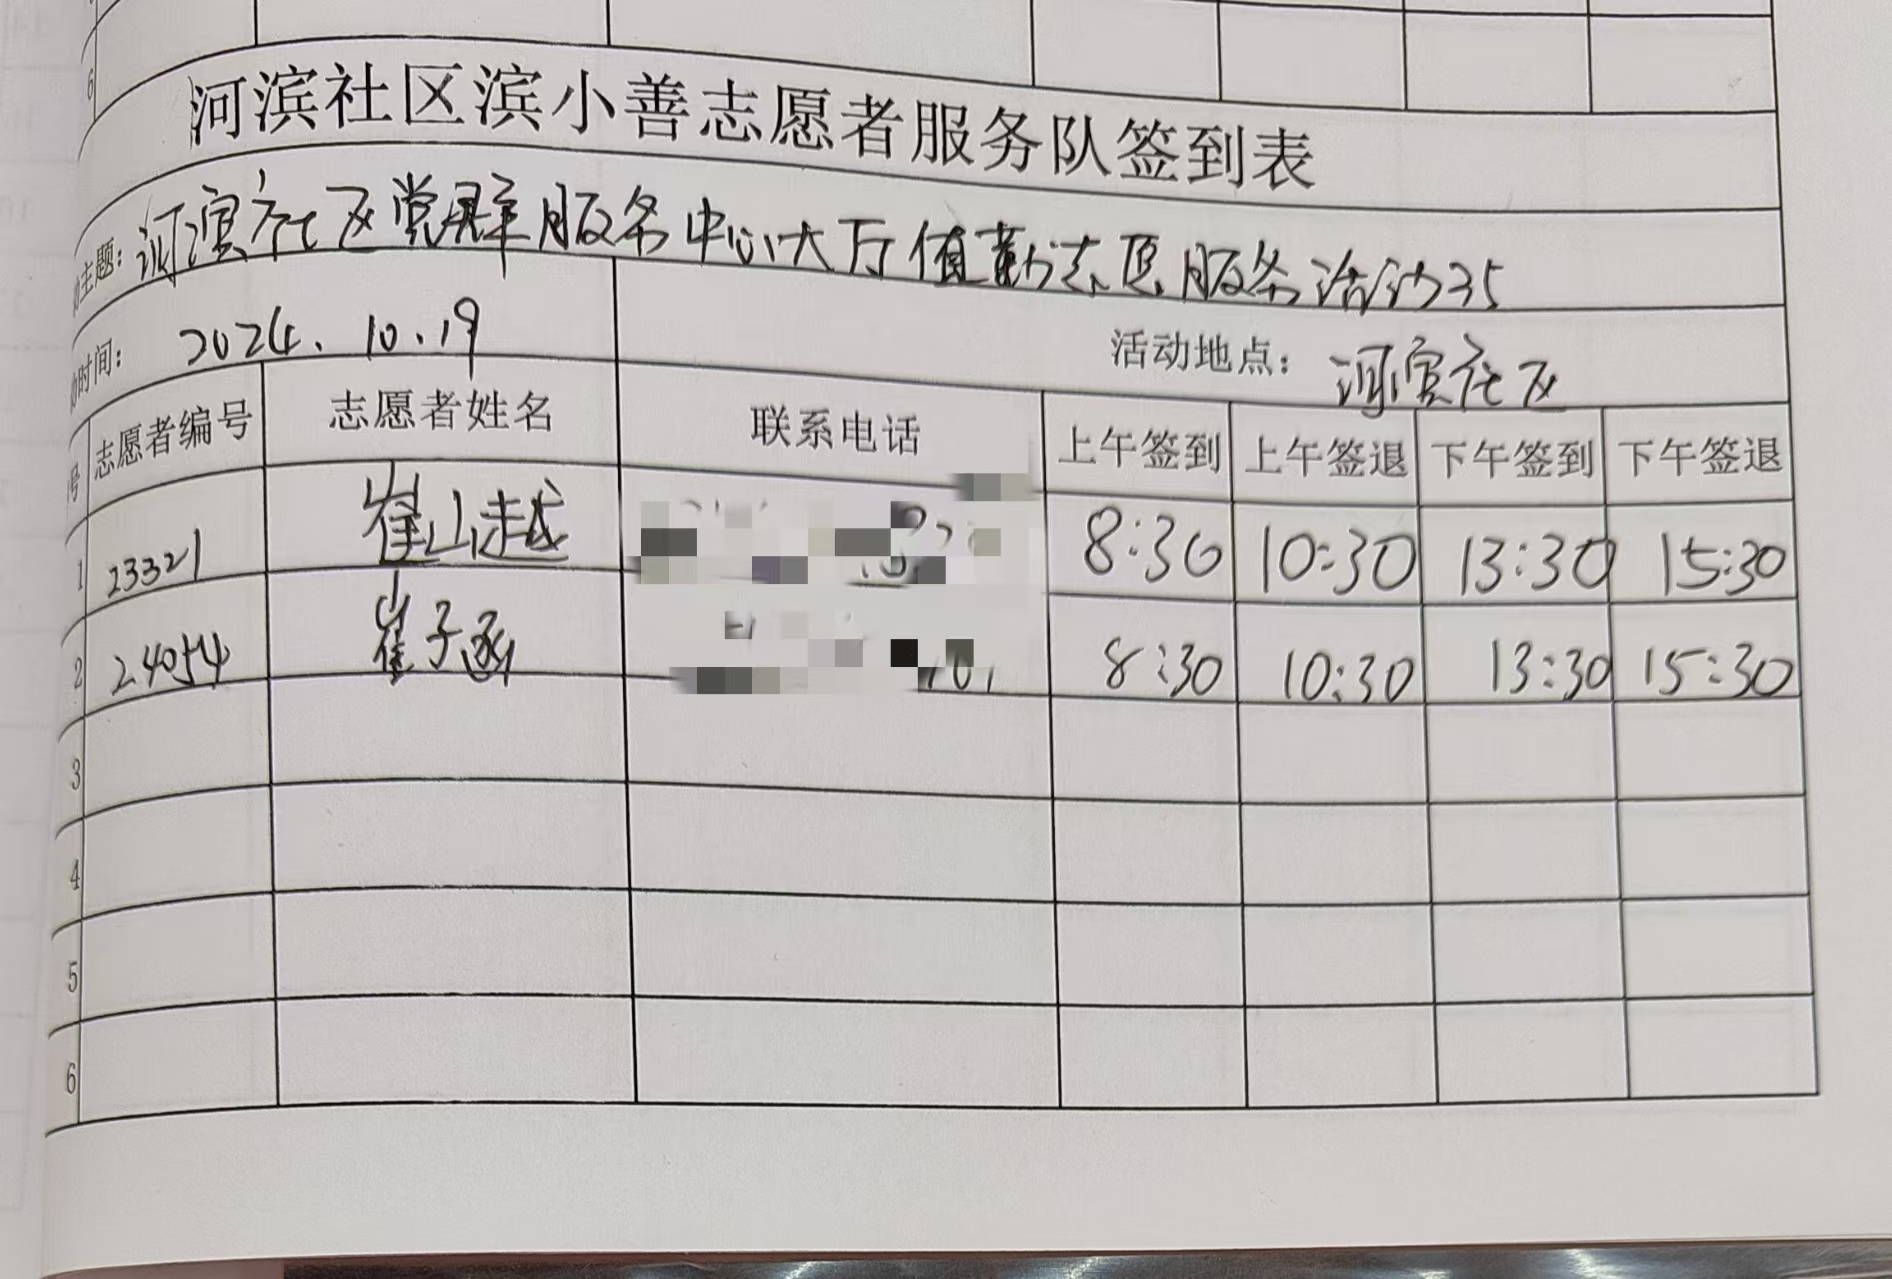 6
河滨社区滨小善志愿者服务队签到表
动主题: 河滨社区党群服务中心大厅值勤志愿服务活动35
动时间: 2024.10.19 活动地点: 河滨社区
号 志愿者编号 志愿者姓名 联系电话 上午签到 上午签退 下午签到 下午签退
1 23321 崔山越 8:30 10:30 13:30 15:30
2 24054 崔子函 8:30 10:30 13:30 15:30
3
4
5
6